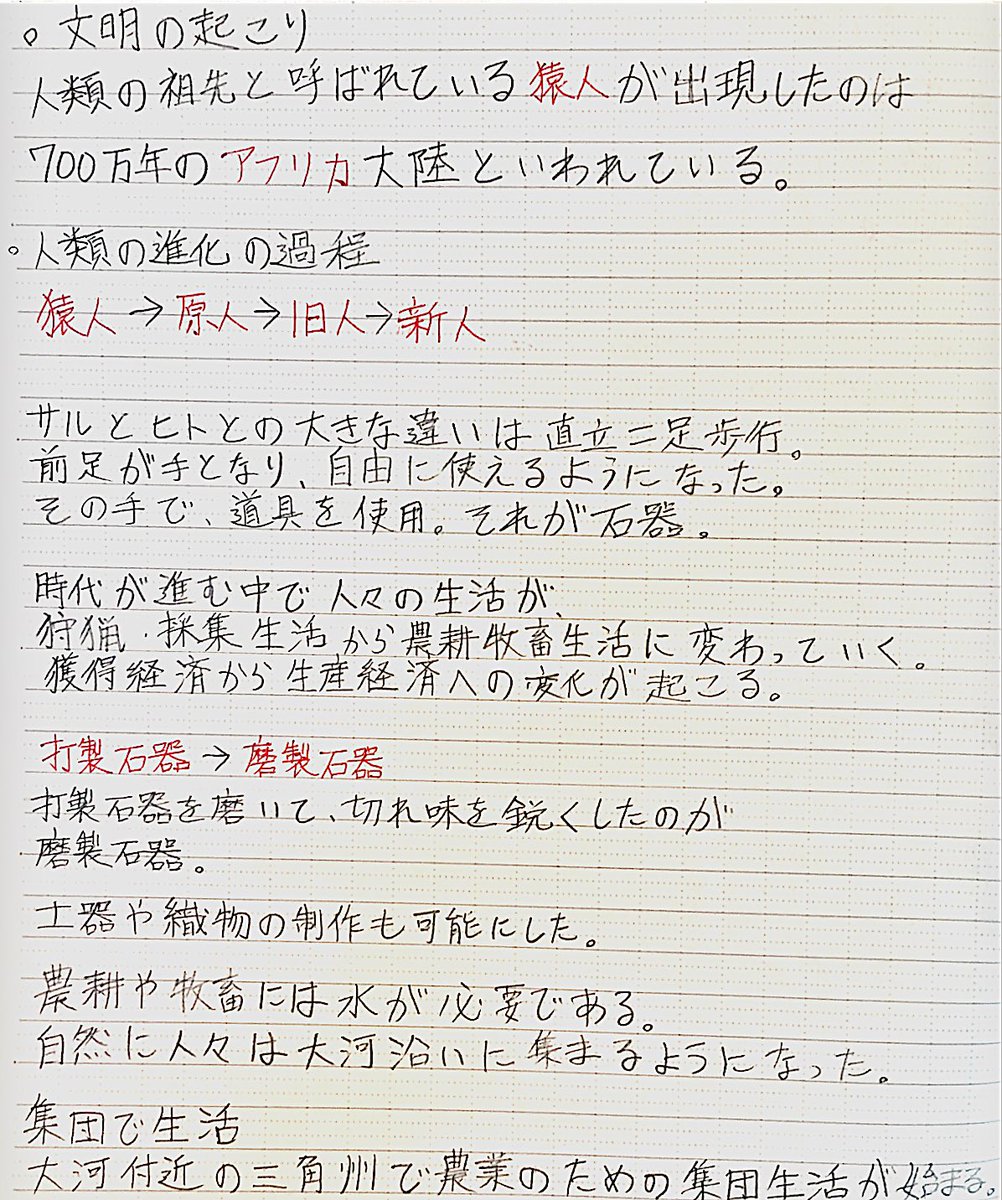 。文明の起こり
人類の祖先と呼ばれている猿人が出現したのは
700万年のアフリカ大陸といわれている。
。人類の進化の過程
猿人→原人→旧人→新人
サルとヒトとの大きな違いは直立二足歩行。
前足が手となり、自由に使えるようになった。
その手で、道具を使用。それが石器。
時代が進む中で人々の生活が、
狩猟・採集生活から農耕牧畜生活に変わっていく。
獲得経済から生産経済への変化が起こる。
打製石器→磨製石器
打製石器を磨いて、切れ味を鋭くしたのが
磨製石器。
土器や織物の制作も可能にした。
農耕や牧畜には水が必要である。
自然に人々は大河沿いに集まるようになった。
集団で生活
大河付近の三角州で農業のための集団生活が始まる。